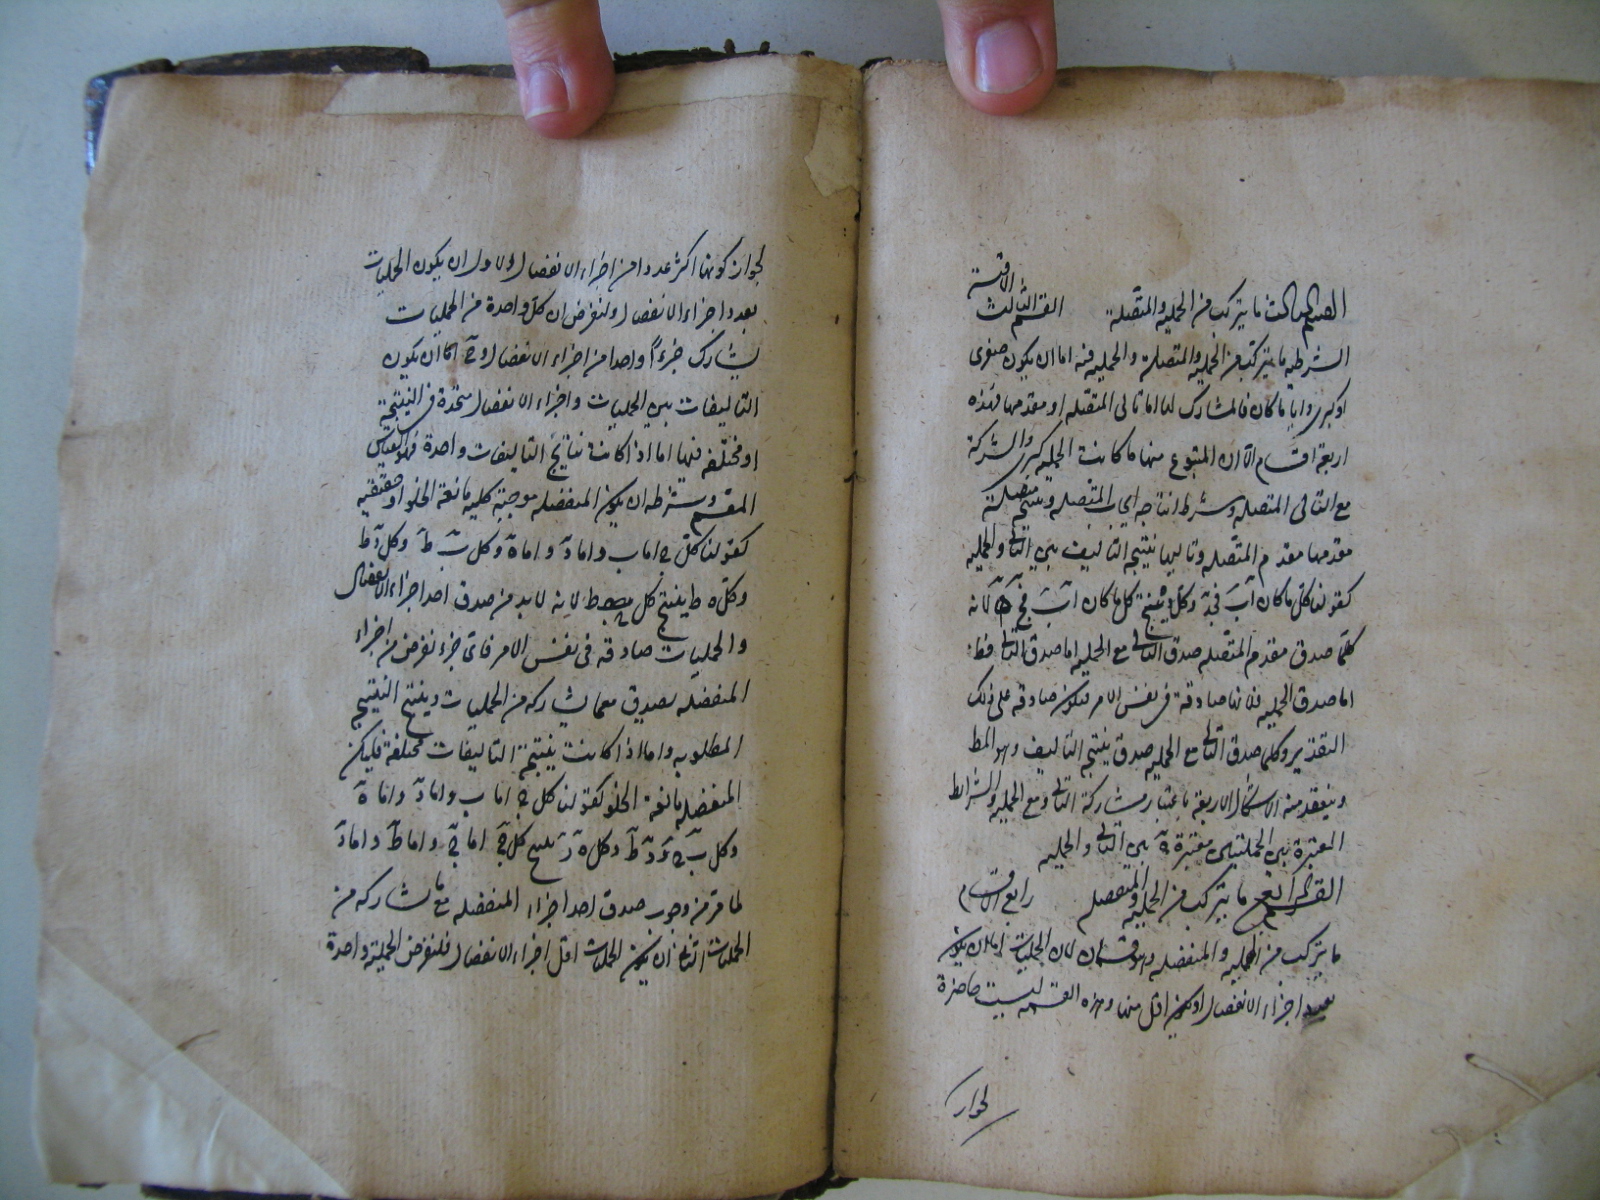 القسم الثالث ما يتركب من الحملية والمتصلة القسم الثالث
الاقيسة
الشرطية ما يتركب من الحملية والمتصلة والحملية فيه اما ان يكون صغرى
او كبرى وايا ما كان فالمشارك لها اما تالى المتصلة او مقدمها فهذه
اربعة اقسام الا ان المطبوع منها ما كانت الحملية كبرى والشركة
مع التالى المتصلة وشرط انتاجه ايجاب المتصلة وينتج متصلة
مقدمها مقدم المتصلة وتاليها نتيجة التاليف بين التالى والحملية
كقولنا كل ما كان آب فجد وكل ينتج كل ما كان آب فج لانه
كلما صدق مقدم المتصلة صدق التالى مع الحملية اما صدق التالى فظ
اما صدق الحملية فلانها صادقة فى نفس الامر فتكون صادقة على ذلك
التقدير وكلما صدق التالى مع الحملية صدق نتيجة التاليف وهو المط
وينعقد فيه الاشكال الاربعة باعتبار مشاركة التالى مع الحملية والشرائط
المعتبرة بين الحمليتين معتبرة بين التالى والحملية
القسم الرابع ما يتركب من الحملية والمنفصلة رابع الاقسام
ما يتركب من الحملية والمنفصلة وهو قسمان لان الحمليات اما ان يكون
بعدد اجزاء الانفصال او يكون اقل منها وهذه القسمة ليست حاصرة
لجواز
لجواز كونها اكثر عددا من اجزاء الانفصال الاول ان يكون الحمليات
بعدد اجزاء الانفصال ولنفرض ان كل واحدة من الحمليات
يشارك جزءا واحدا من اجزاء الانفصال وح اما ان يكون
التاليفات بين الحمليات واجزاء الانفصال متحدة فى النتيجة
او مختلفة فيها اما اذا كانت نتايج التاليفات واحدة فهو القياس
المقسم وشرطه ان يكون المنفصلة موجبة كلية مانعة الخلو او حقيقية
كقولنا كل ج اما ب واما د واما ه وكل ب ط وكل د ط
وكل ه ط ينتج كل ج ط لانه لابد من صدق احد اجزاء الانفصال
والحمليات صادقة فى نفس الامر فاى جزء نفرض من اجزاء
المنفصلة يصدق مع ما يشاركه من الحمليات وينتج النتيجة
المطلوبه واما اذا كانت نتيجة التاليفات مختلفة فليكن
المنفصلة مانعة الخلو كقولنا كل ج اما ب واما د واما ه
وكل ب ج و د ط وكل ه ز ينتج كل ج اما ج واما ط واما ز
لما مر من وجوب صدق احد اجزاء المنفصلة مع ما يشاركه من
الحمليات الثانى ان يكون الحمليات اقل اجزاء الانفصال فلنفرض الحملية واحدة